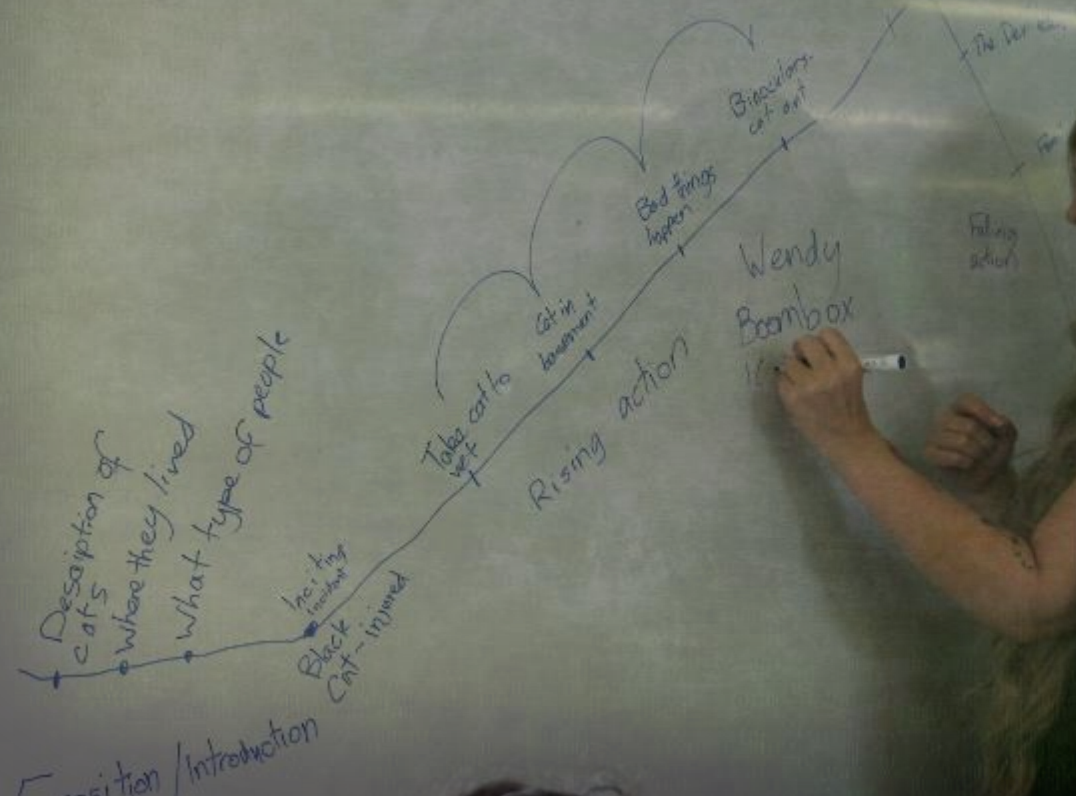 Description of
cats
where they lived
what type of people
Inciting
incident
Black
Cat-injured
/Introduction
Take cat to
vet
Cat in
basement
Bad things
happen
Binoculars-
cat out
Rising action
Wendy
Boombox
The
Falling
action